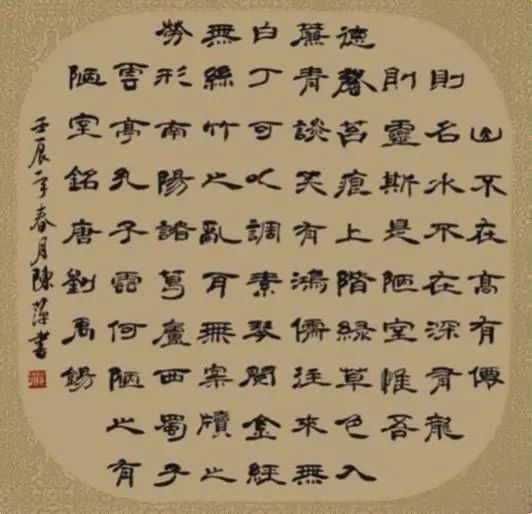 山不在高有僊
則名水不在深有龍
則靈斯是陋室惟吾
德馨苔痕上階緑草色入
簾青談笑有鴻儒往來無
白丁可以調素琴閱金經
無絲竹之亂耳無案牘之
勞形南陽諸葛廬西蜀子
雲亭孔子雲何陋之有
陋室銘唐劉禹錫
壬辰年春月陳萍書